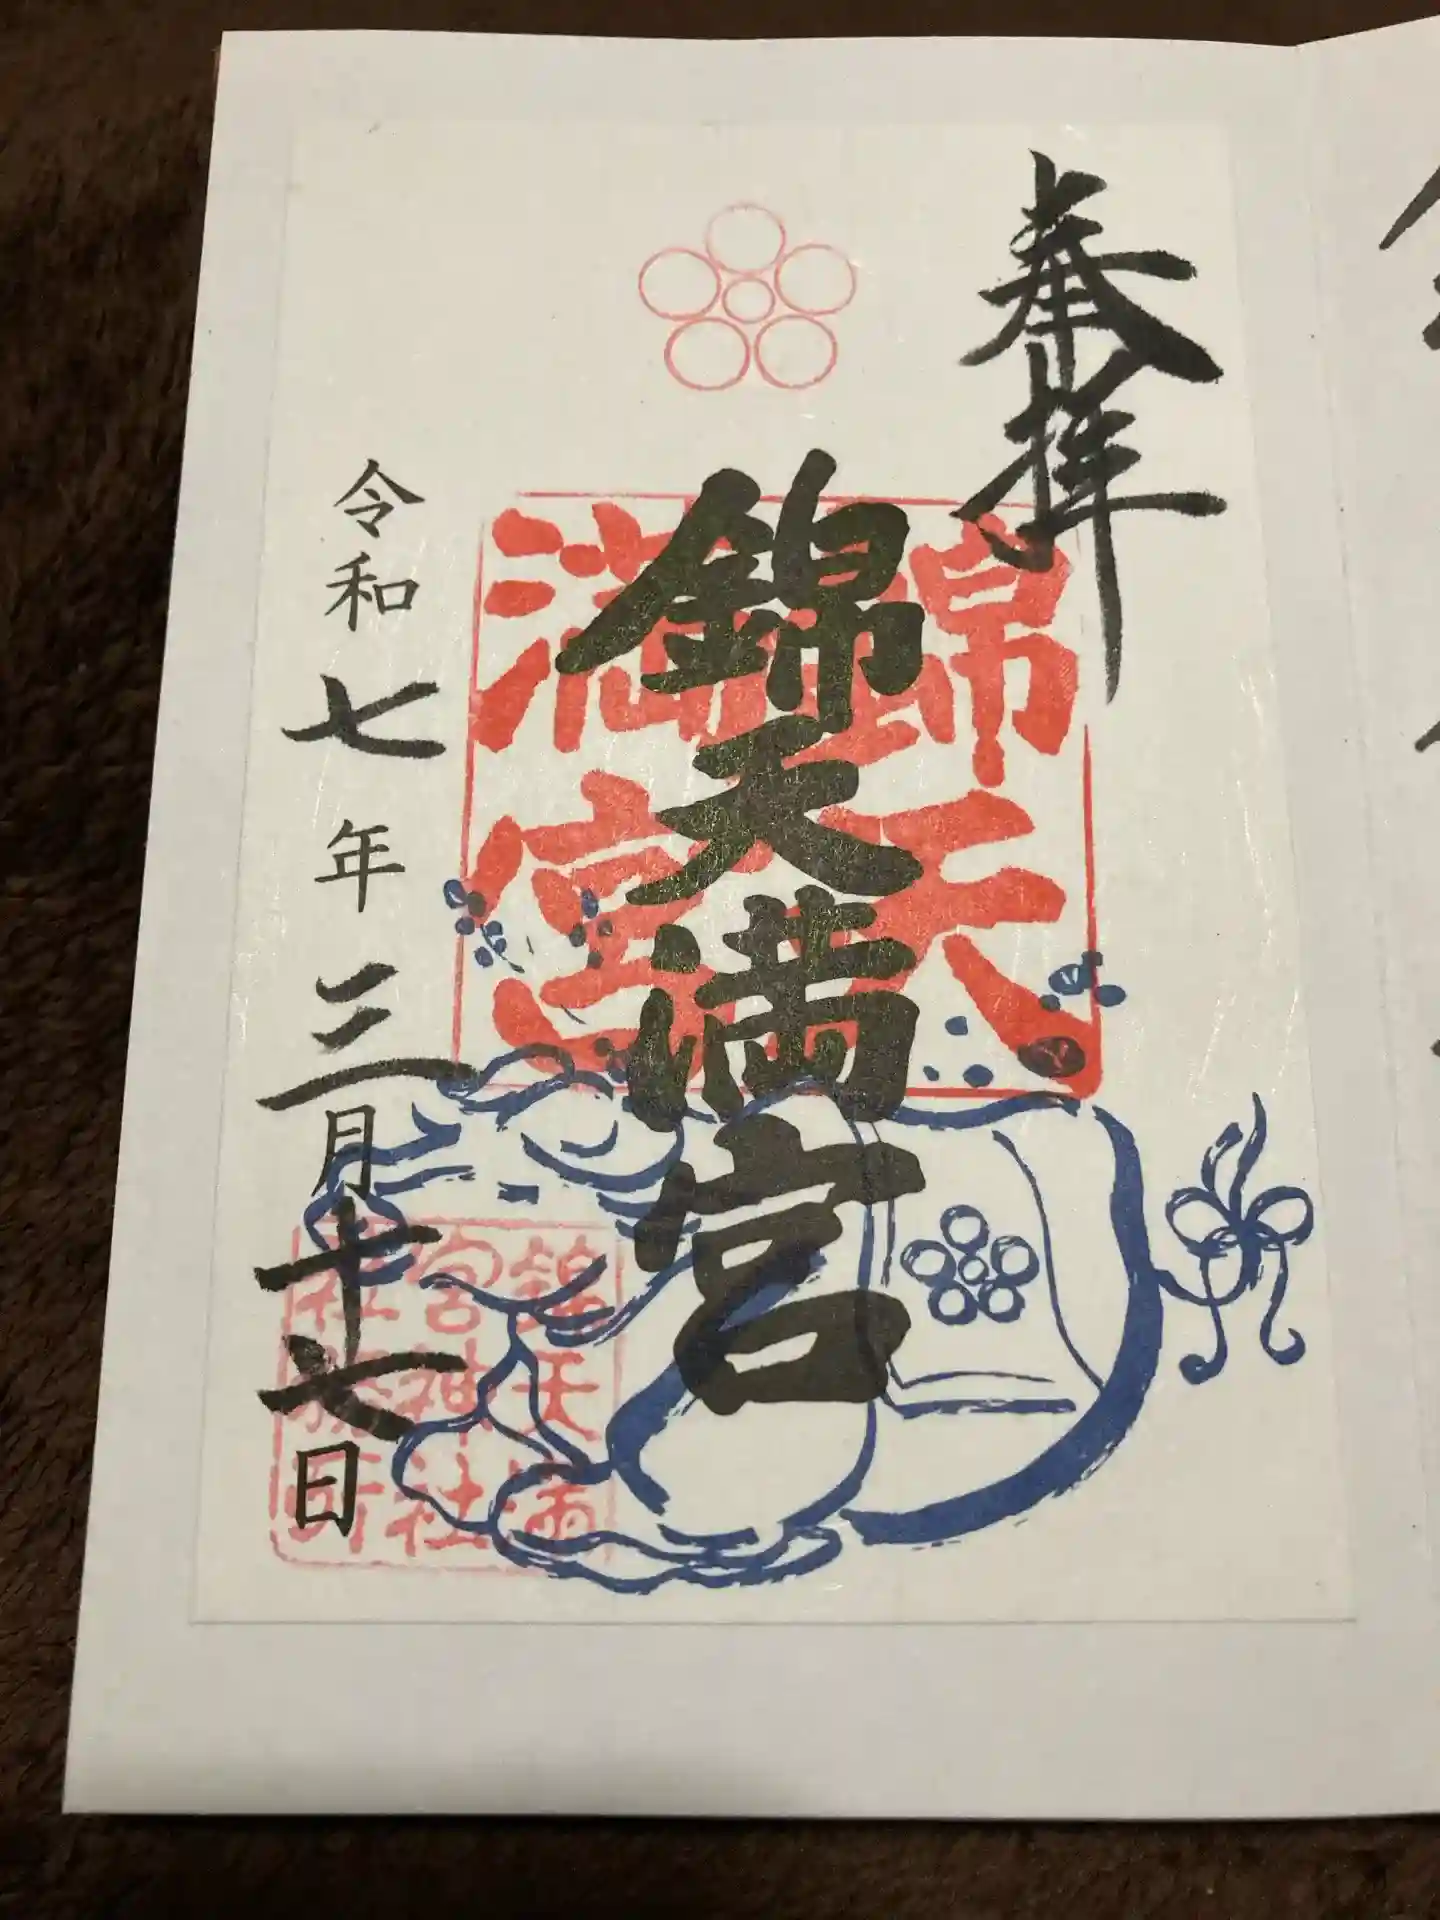 奉拝
錦天満宮
錦天
満宮
令和七年三月十七日
錦天満
宮神社
社務所